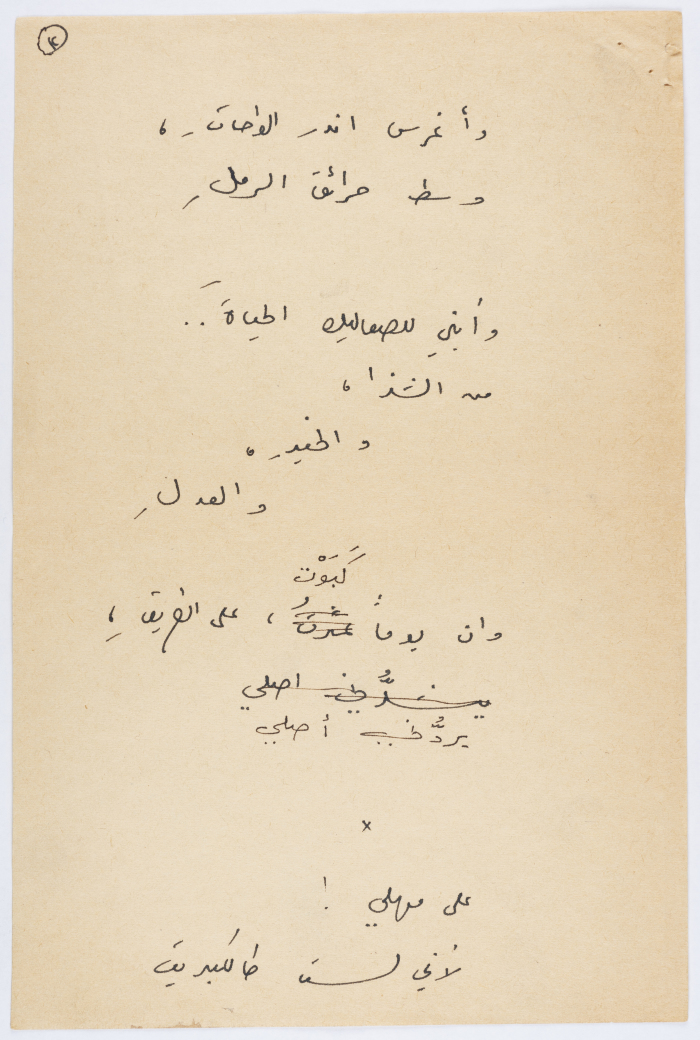 ٤
وأغرس اندر الواحات ِ ،
وسط حرائق الرملِ
وأبني للصعاليك الحياةَ ..
من الشذا ،
والخير ِ ،
والعدلِ
كَبَوْتُ
وان يوماً عثرتُ ، على الطريق ِ ،
يشدُّني اصلي
يردُّني أصلي
x
على مهلي !
لأني لست كالكبريت